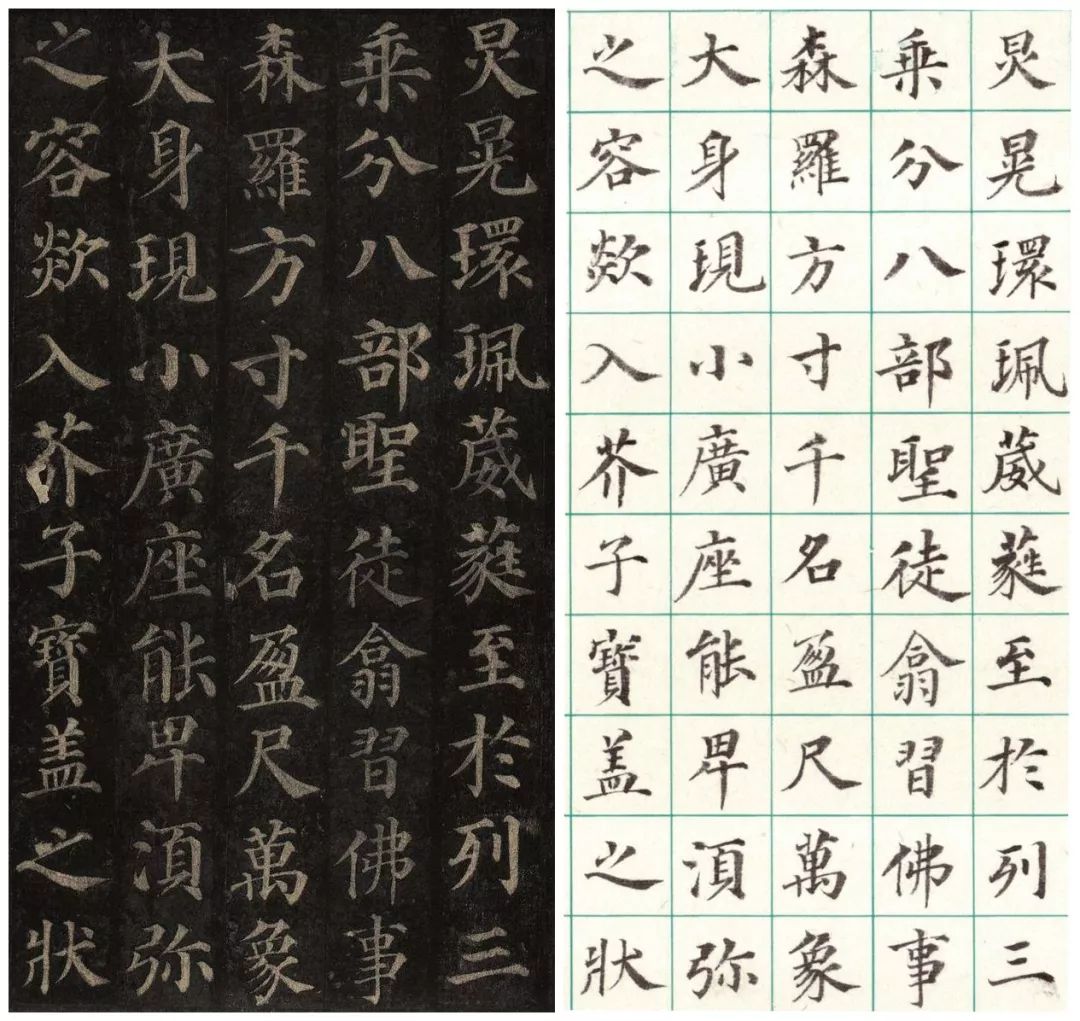 炅晃環珮葳蕤至於列三
乘分八部聖徒翕習佛事
森羅方寸千名盈尺萬象
大身現小廣座能卑湏弥
之容欻入芥子寶盖之狀
炅晃環珮葳蕤至於列三
乘分八部聖徒翕習佛事
森羅方寸千名盈尺萬象
大身現小廣座能卑湏弥
之容欻入芥子寶盖之狀